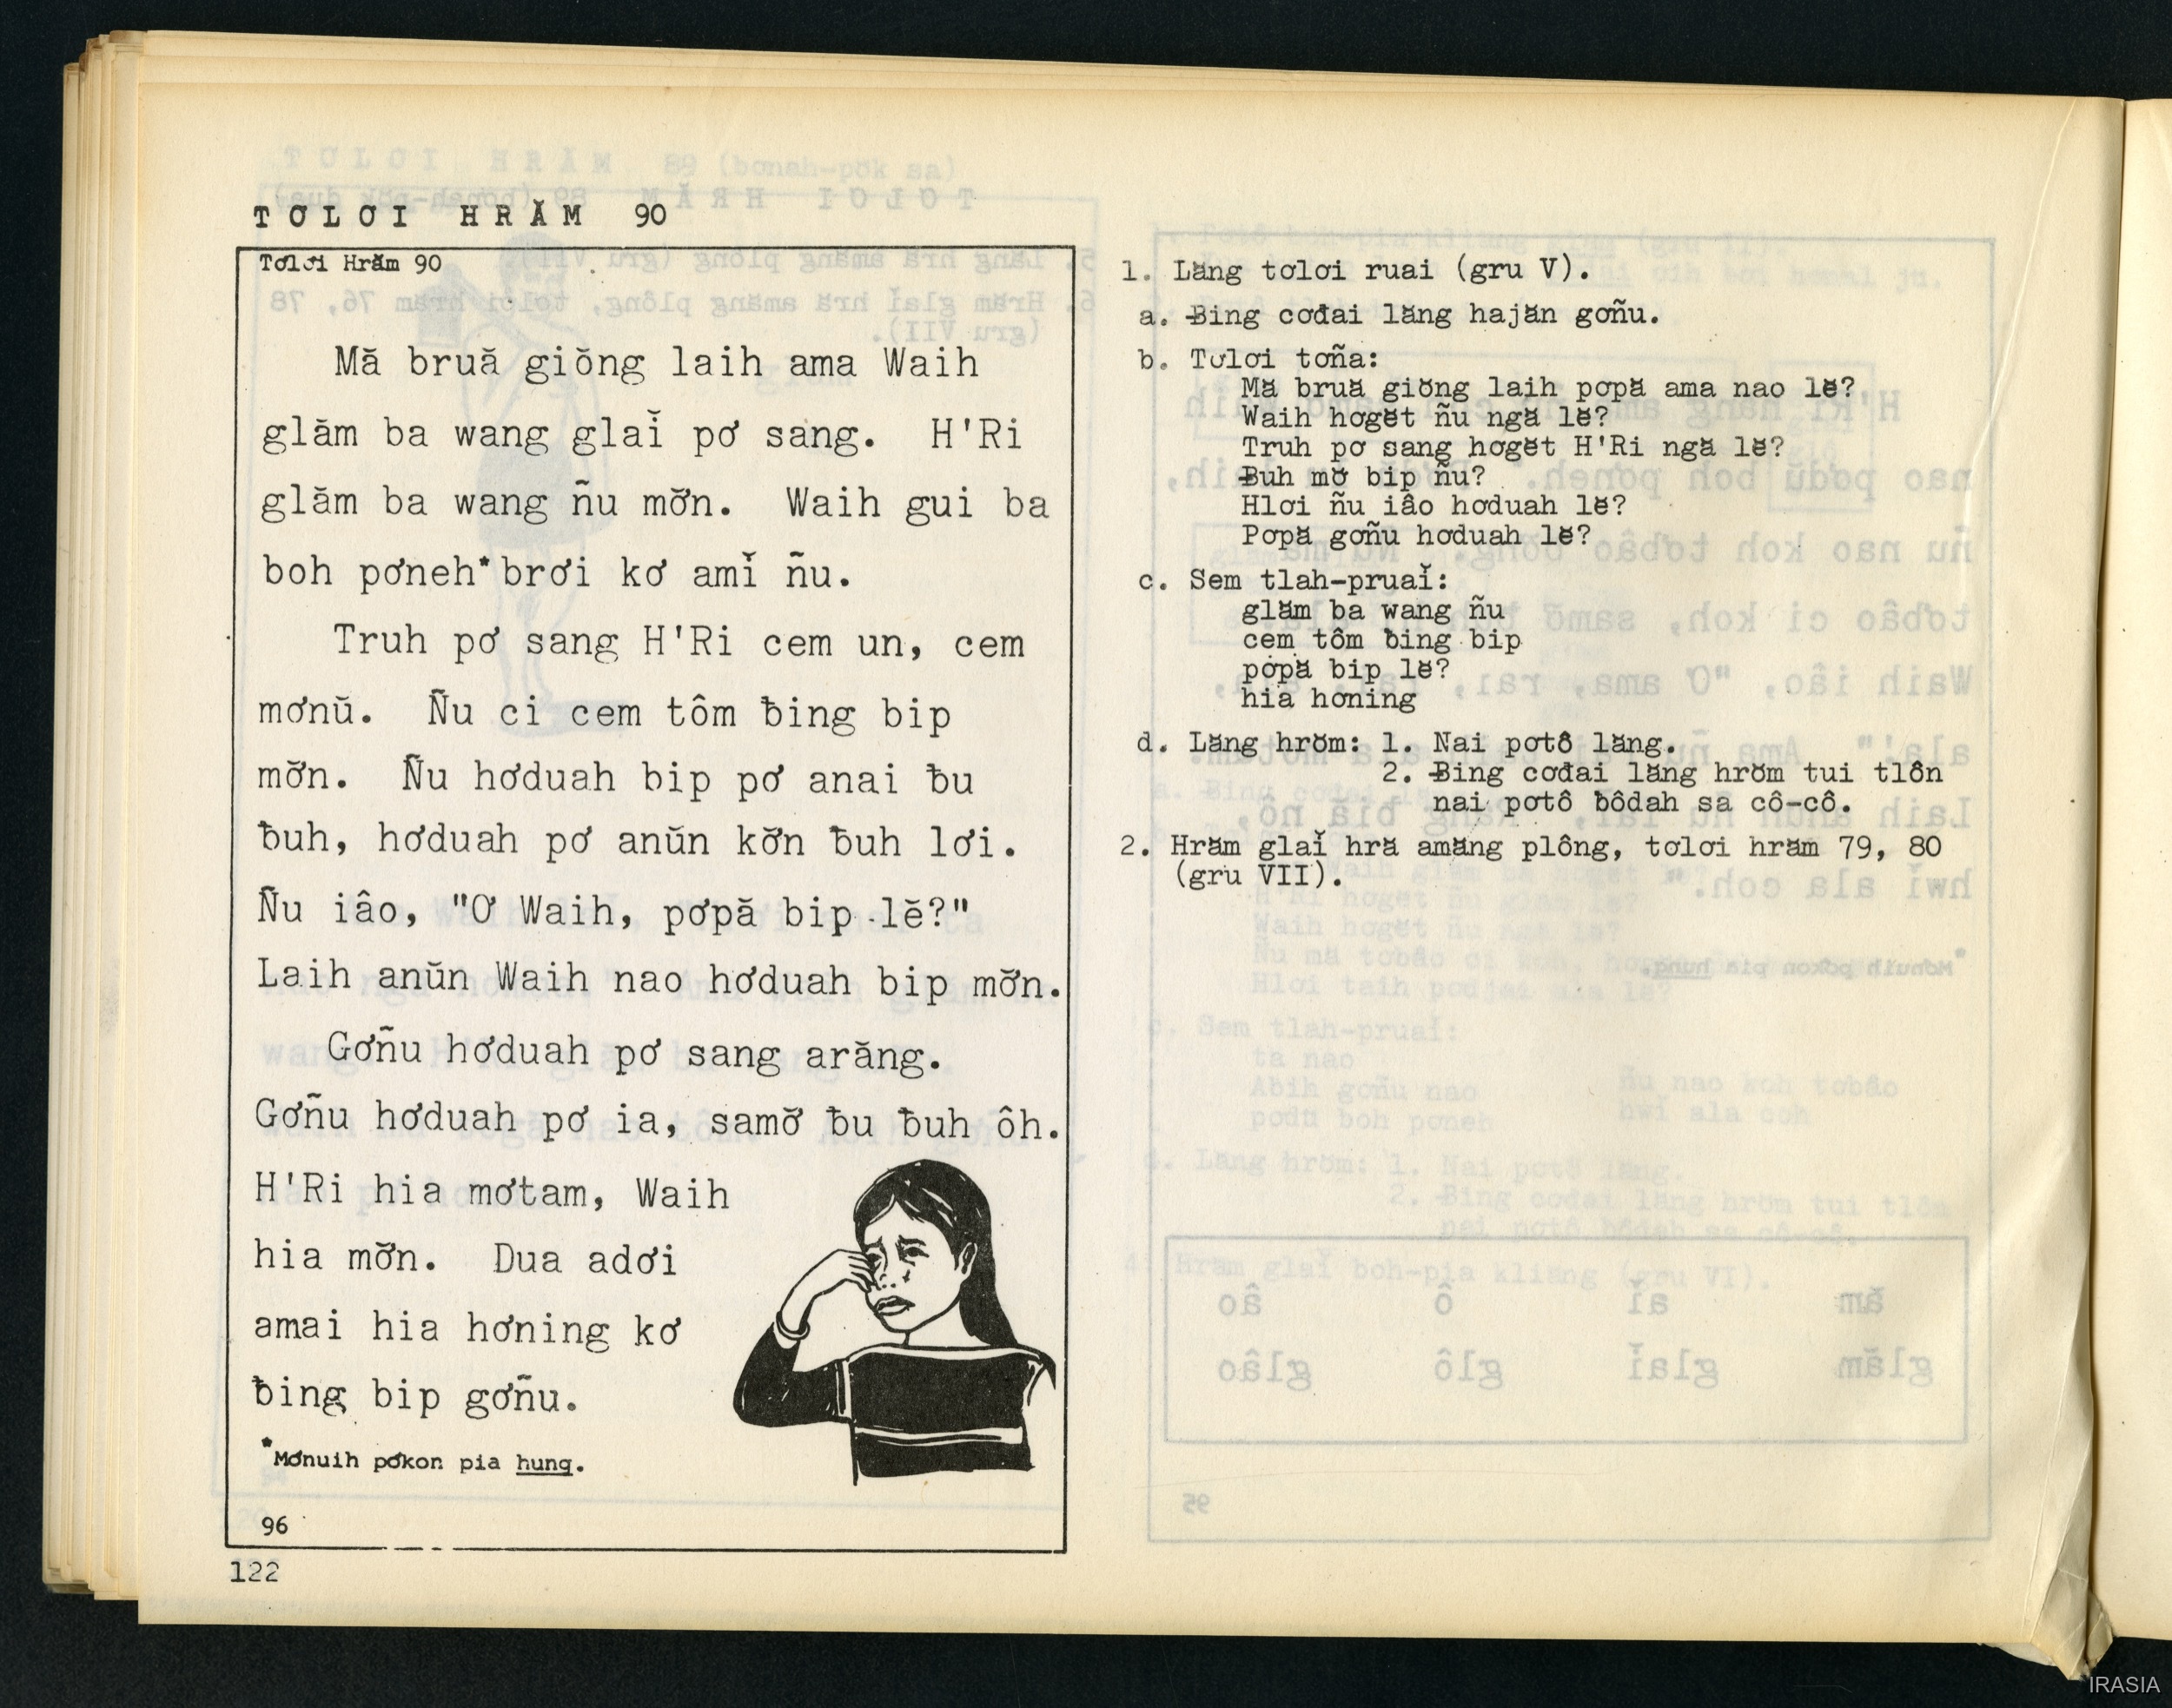 TƠLƠI HRĂM 90
Tơlơi Hrăm 90
Mă bruă giŏng laih ama Waih
glăm ba wang glaĭ pơ sang. H'Ri
glăm ba wang ñu mơ̆n. Waih gui ba
boh pơneh* brơi kơ amĭ ñu.
Truh pơ sang H'Ri cem un, cem
mơnŭ. Ñu ci cem tôm ƀing bip
mơ̆n. Ñu hơduah bip pơ anai ƀu
ƀuh, hơduah pơ anŭn kơ̆n ƀuh lơi.
Ñu iâo, "Ơ Waih, pơpă bip lĕ?"
Laih anŭn Waih nao hơduah bip mơ̆n.
Gơñu hơduah pơ sang arăng.
Gơñu hơduah pơ ia, samơ̆ ƀu ƀuh ôh.
H'Ri hia mơtam, Waih
hia mơ̆n. Dua adơi
amai hia hơning kơ
ƀing bip gơñu.
*Mơnuih pơkon pia hung.
96
122
1. Lăng tơlơi ruai (gru V).
a. Ƀing cơđai lăng hajăn gơñu.
b. Tơlơi tơña:
Mă bruă giŏng laih pơpă ama nao lĕ?
Waih hơgĕt ñu ngă lĕ?
Truh pơ sang hơgĕt H'Ri ngă lĕ?
Ƀuh mơ̆ bip ñu?
Hlơi ñu iâo hơduah lĕ?
Pơpă gơñu hơduah lĕ?
c. Sem tlah-pruaĭ:
glăm ba wang ñu
cem tôm ƀing bip
pơpă bip lĕ?
hia hơning
d. Lăng hrŏm: 1. Nai pơtô lăng.
2. Ƀing cơđai lăng hrŏm tui tlôn
nai pơtô ƀôdah sa cô-cô.
2. Hrăm glaĭ hră amăng plông, tơlơi hrăm 79, 80
(gru VII).
IRASIA